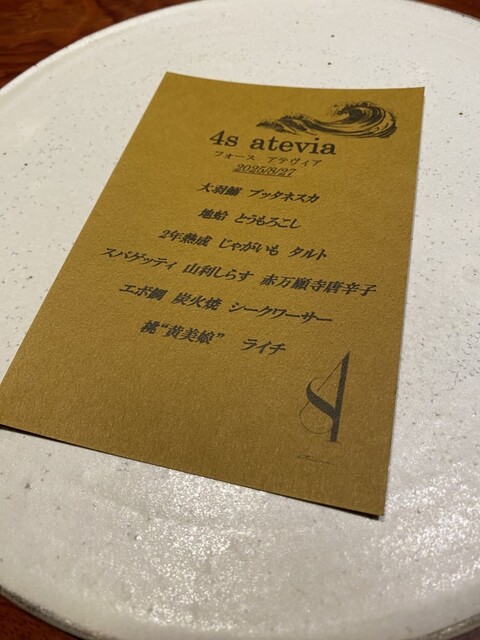 4s atevia
フォース アテヴィア
2025/8/27
大羽鰯 プッタネスカ
地蛤 とうもろこし
2年熟成 じゃがいも タルト
スパゲッティ 山利しらす 赤万願寺唐辛子
エボ鯛 炭火焼 シークワーサー
桃“黄美娘” ライチ